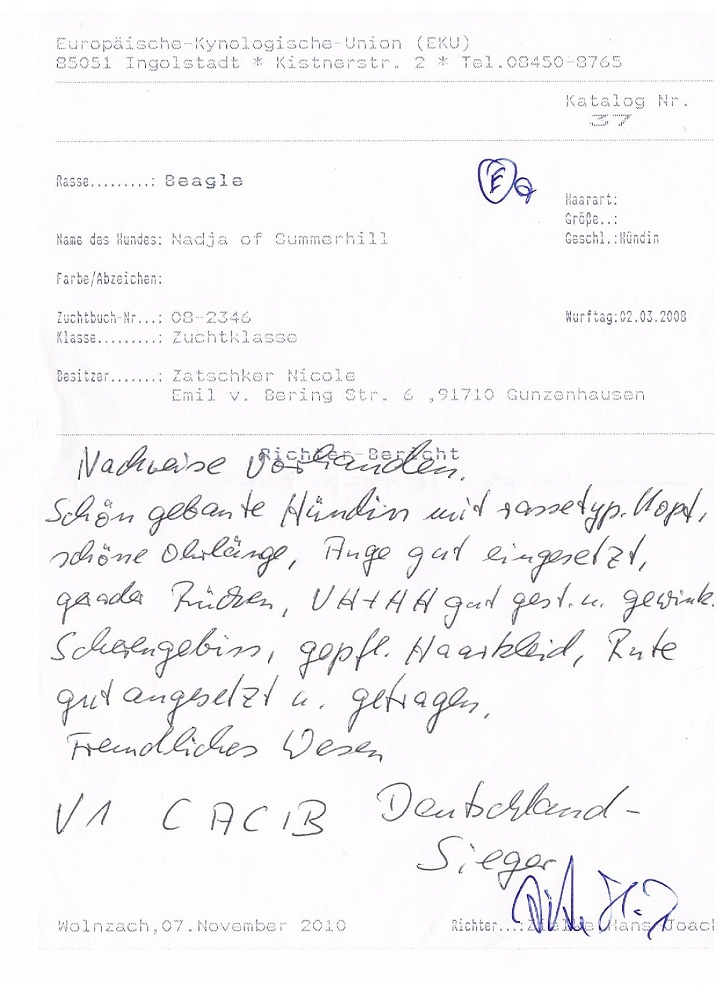 Europäische-Kynologische-Union (EKU)
85051 Ingolstadt * Kistnerstr. 2 * Tel.08450-8765
Katalog Nr.
37
Rasse.........: Beagle
Haarart:
Größe..:
Name des Hundes: Nadja of Summerhill
Geschl.:Hündin
Farbe/Abzeichen:
Zuchtbuch-Nr...: 08-2346
Wurftag:02.03.2008
Klasse.........: Zuchtklasse
Besitzer.......: Zatschker Nicole
Emil v. Bering Str. 6 ,91710 Gunzenhausen
Richter-Bericht
Nachweise vorhanden.
Schön gebaute Hündin mit rassetyp. Kopf,
schöne Ohrlänge, Auge gut eingesetzt,
gerader Rücken, VH+HH gut gest. u. gewink.
Scherengebiss, gepfl. Haarkleid, Rute
gut angesetzt u. getragen,
Freundliches Wesen
V1 CACIB Deutschland-
Sieger
Wolnzach,07.November 2010
Richter...: Hans Joac